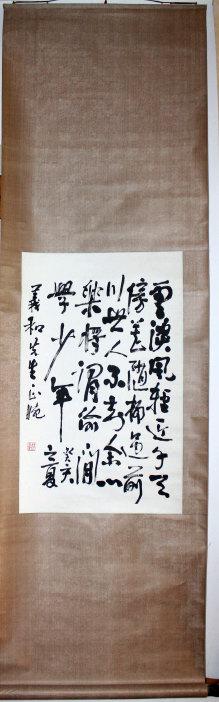 雲淡風輕近午天
傍花隨柳過前
川世人不知余心
樂將謂偷閒
學少年
癸亥
之夏
義和先生正腕